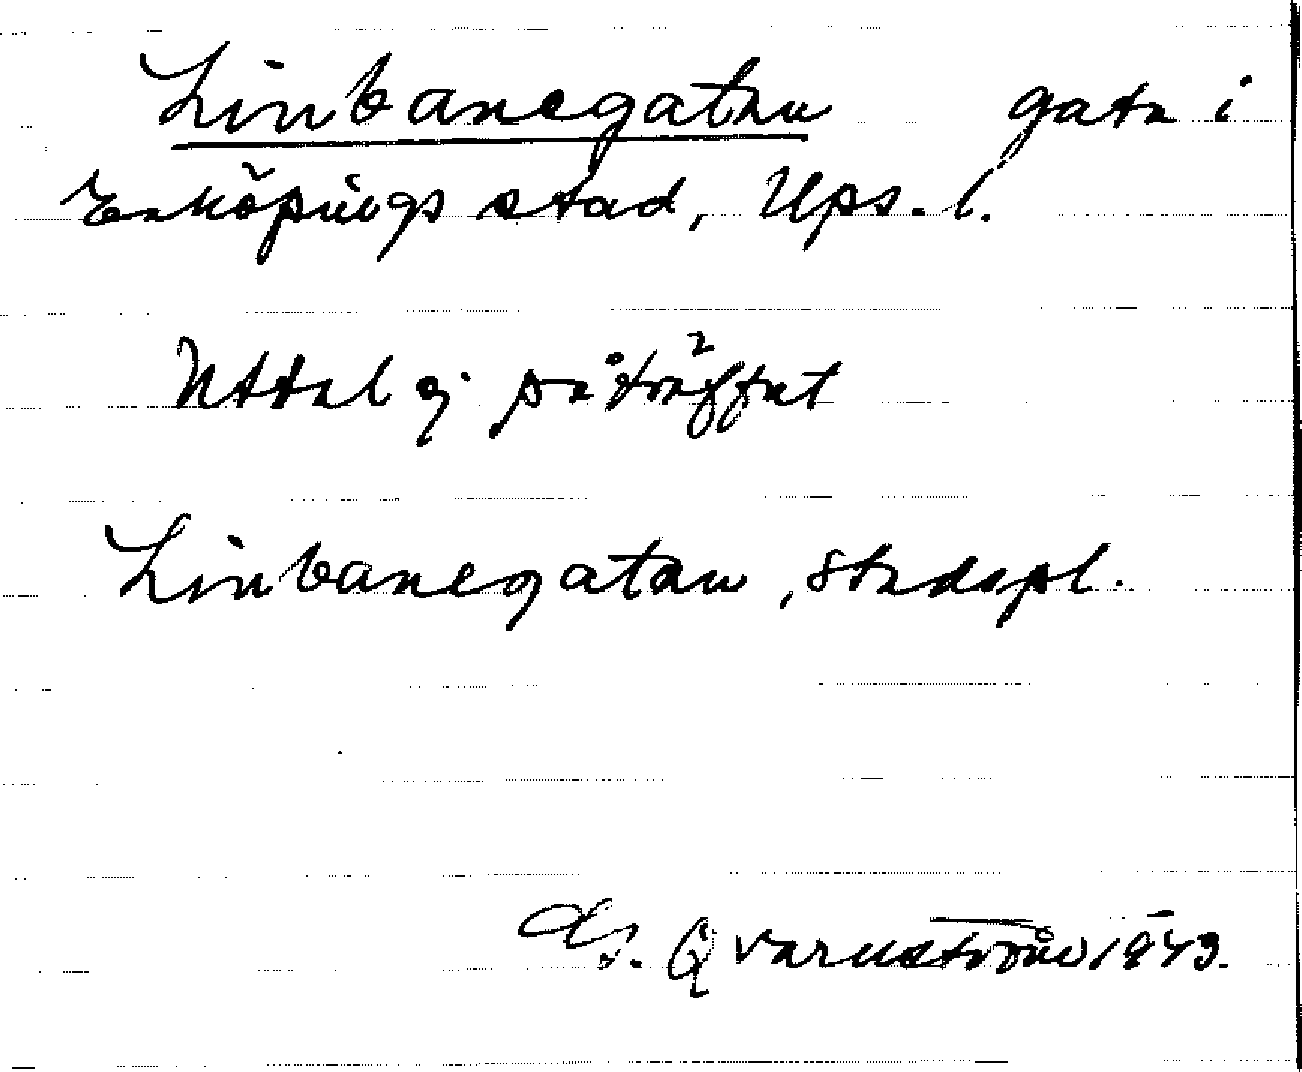 Linbanegatan gata i
Enköpings stad, Ups. l.
Uttal ej påträffat
Linbanegatan, stadspl.
G. Qvarnström 1943.